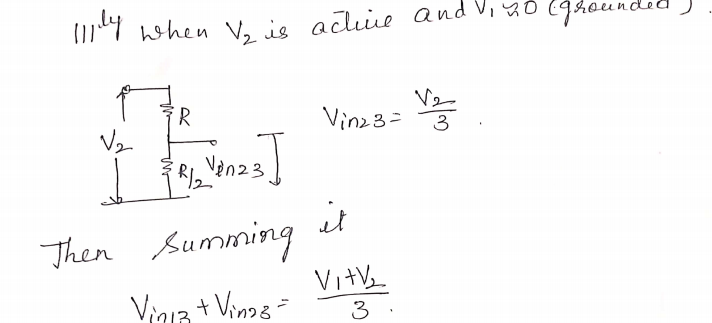 IIIly when V2 is active and V1 is 0 (grounded).
R
Vin23 = V2/3 .
V2
R/2 Vin23
Then summing it
Vin13 + Vin23 = V1+V2/3 .